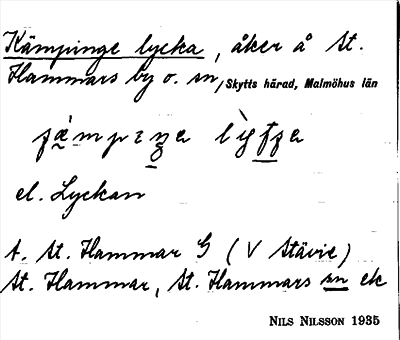 Kämpinge lycka, åker å St.
Hammars by o. sn, Skytts härad, Malmöhus län
el. Lyckan
t. St. Hammar G (V Stävie)
St. Hammar, St. Hammars sn ek
NILS NILSSON 1935